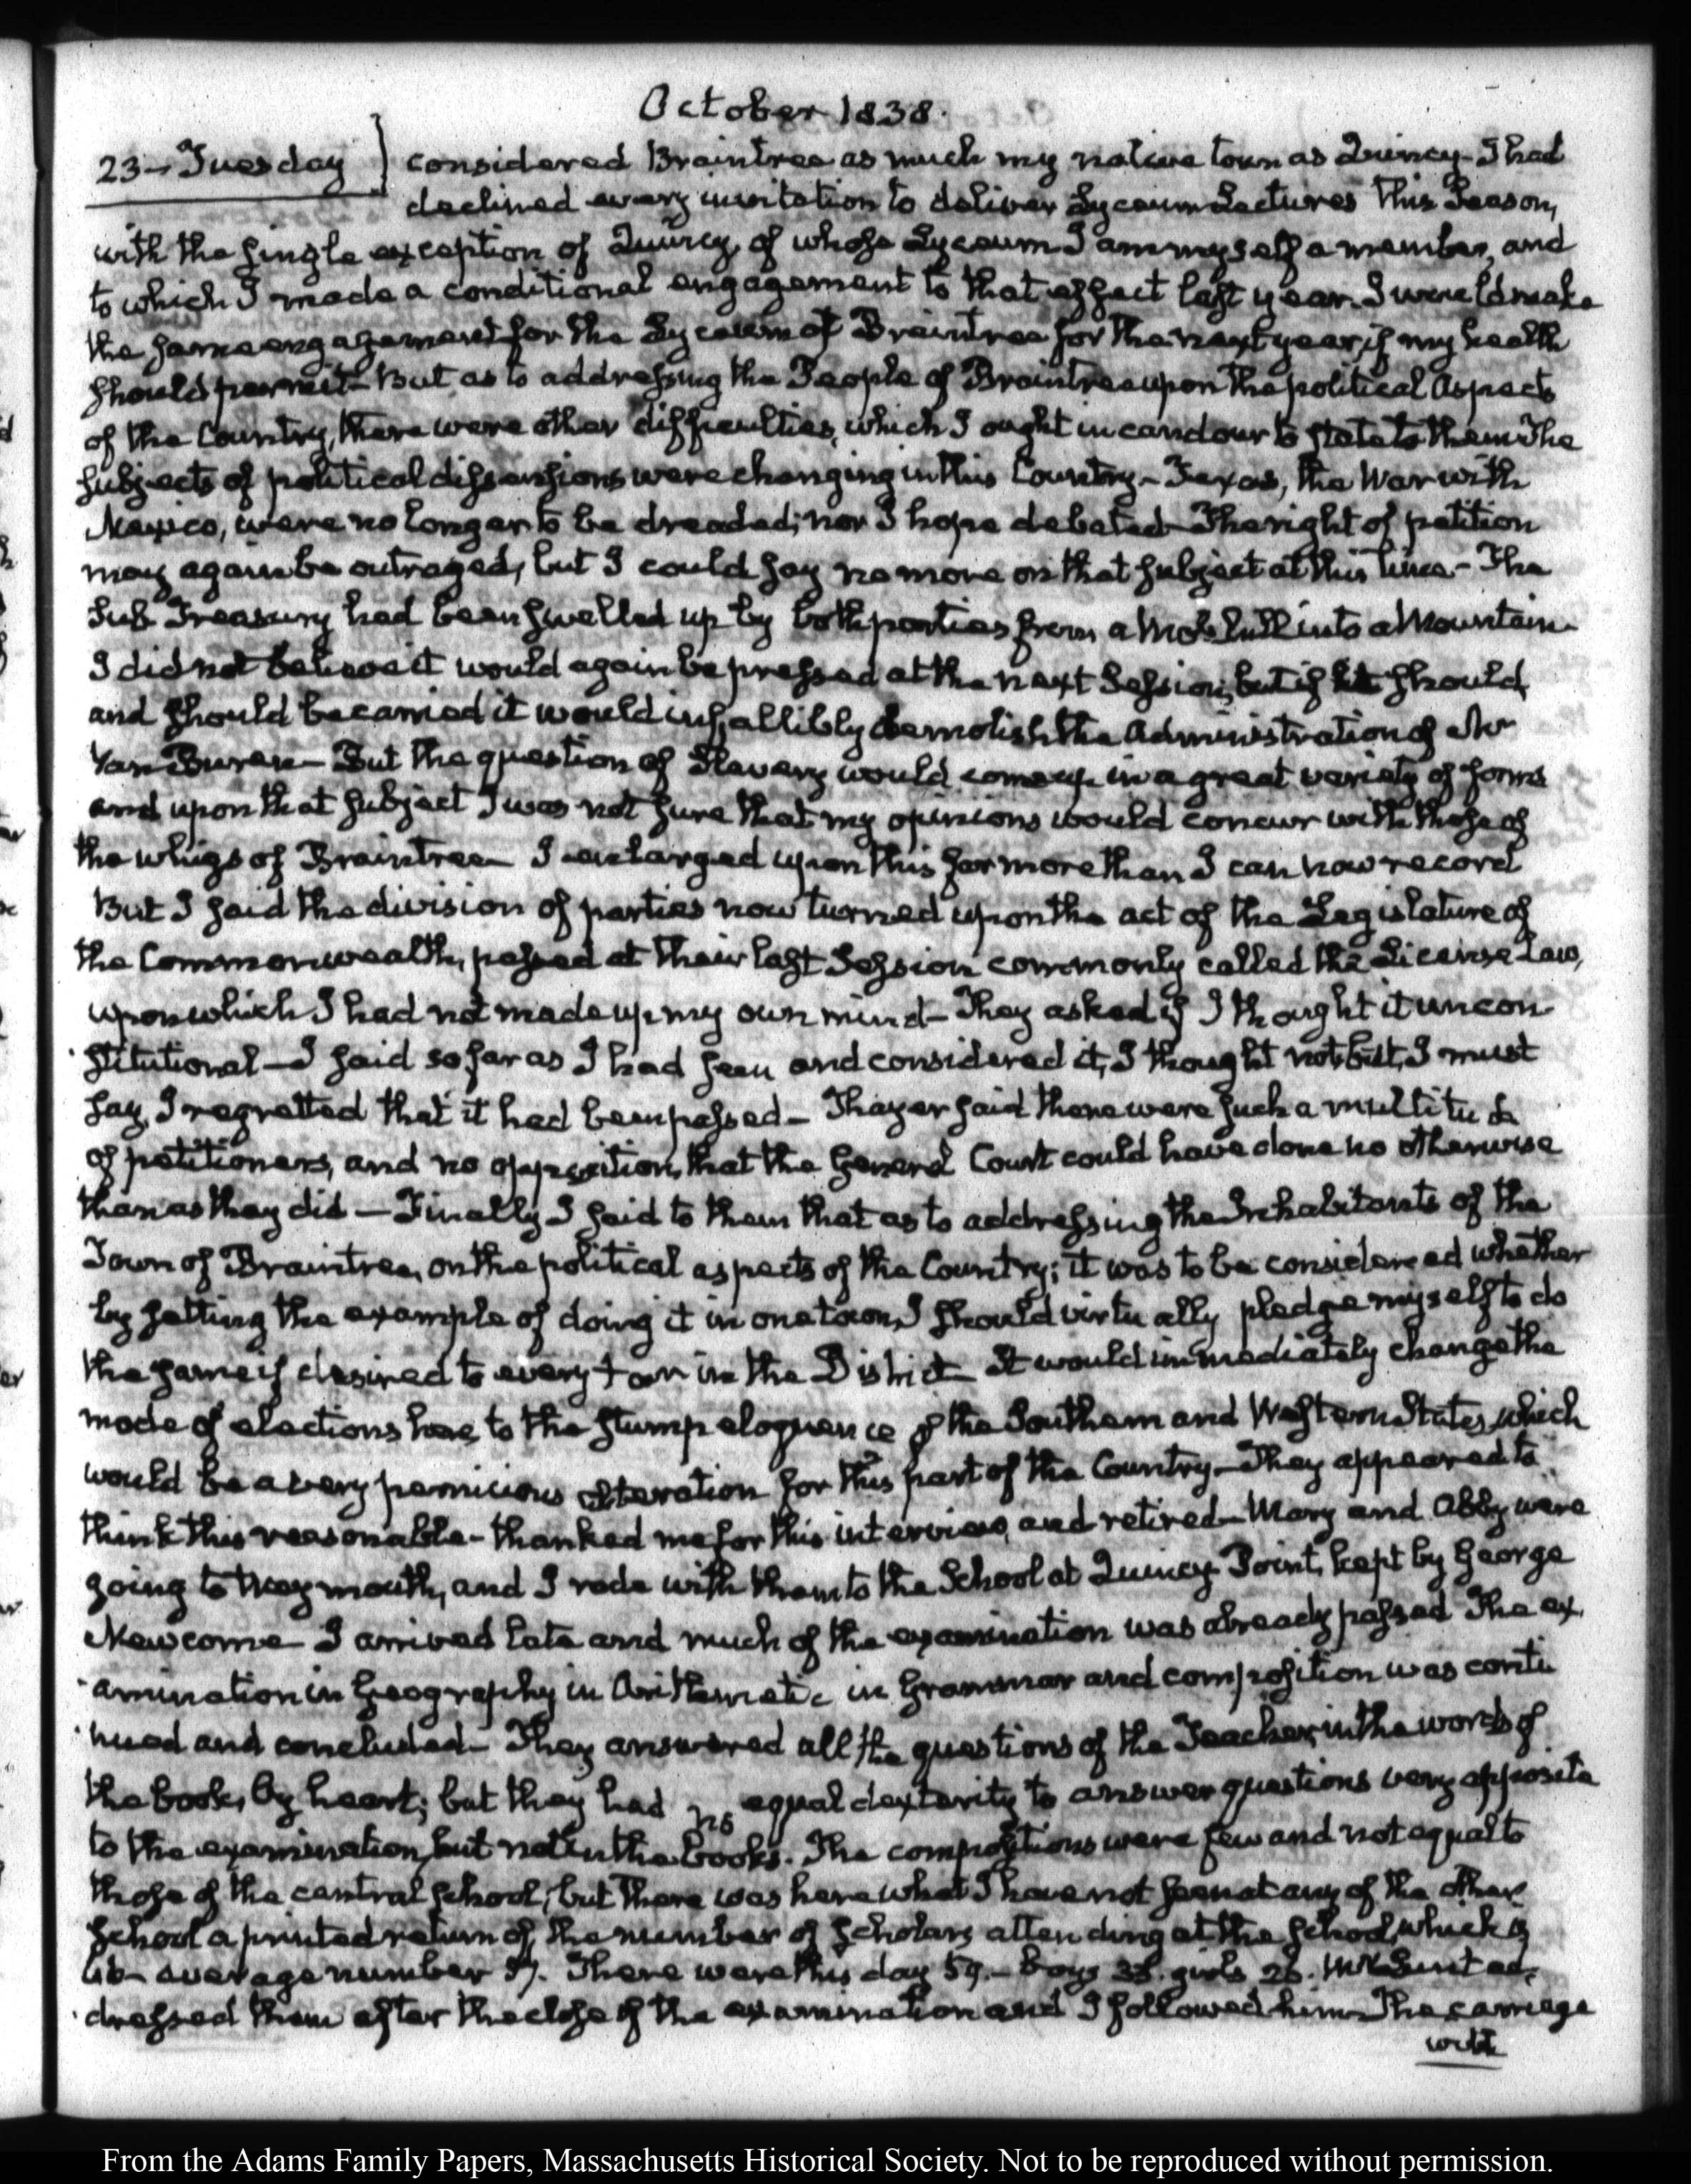 October 1838.
23— Tuesday } considered Braintree as much my native town as Quincy— I had
declined every invitation to deliver Lyceum Lectures this Season,
with the single exception of Quincy, of whose Lyceum I am myself a member, and
to which I made a conditional engagement to that effect last year. I would make
the same engagement for the Lyceum of Braintree for the next year, if my health
should permit— But as to addressing the People of Braintree upon the political Aspects
of the Country, there were other difficulties, which I ought in candour to state to them The
subjects of political dissensions were changing in this Country— Texas, the War with
Mexico, were no longer to be dreaded; nor I hope debated— The right of petition
may again be outraged, but I could say no more on that subject at this time— The
Sub Treasury had been swelled up by both parties from a Mole hill into a Mountain—
I did not believe it would again be pressed at the next Session, but if it should,
and should be carried it would infallibly demolish the Administration of Mr
Van Buren— But the question of Slavery would come up in a great variety of forms
and upon that subject I was not sure that my opinions would concur with those of
the whigs of Braintree— I enlarged upon this far more than I can now record
But I said the division of parties now turned upon the act of the Legislature of
the Commonwealth, passed at their last Session commonly called the License Law,
upon which I had not made up my own mind— They asked if I thought it uncon-
stitutional— I said so far as I had seen and considered it, I thought not, but, I must
say, I regretted that it had been passed— Thayer said there were such a multitude
of petitioners, and no opposition, that the General Court could have done no otherwise
than as they did— Finally I said to them that as to addressing the Inhabitants of the
Town of Braintree, on the political aspects of the Country; it was to be considered whether
by setting the example of doing it in one town, I should virtually pledge myself to do
the same if desired to every town in the District— It would immediately change the
mode of elections here, to the stump eloquence of the Southern and Western States, which
would be a very pernicious alteration for this part of the Country— They appeared to
think this reasonable— thanked me for this interview, and retired— Mary and Abby were
going to Weymouth, and I rode with them to the School at Quincy Point, kept by George
Newcome— I arrived late and much of the examination was already passed The ex-
amination in Geography in Arithmetic in Grammar and composition was conti
nued and concluded— They answered all the questions of the Teacher, in the words of
the book, by heart; but they had no equal dexterity to answer questions very apposite
to the examination, but not in the books. The compositions were few and not equal to
those of the central School; but there was here what I have not seen at any of the other
School a printed return of the number of Scholars attending at the School, which is
average number 57. There were this day 59.— boys girls 26. Mr Lunt ad-
dressed them after the close of the examination and I followed him— The carriage
with
From the Adams Family Papers, Massachusetts Historical Society. Not to be reproduced without permission.